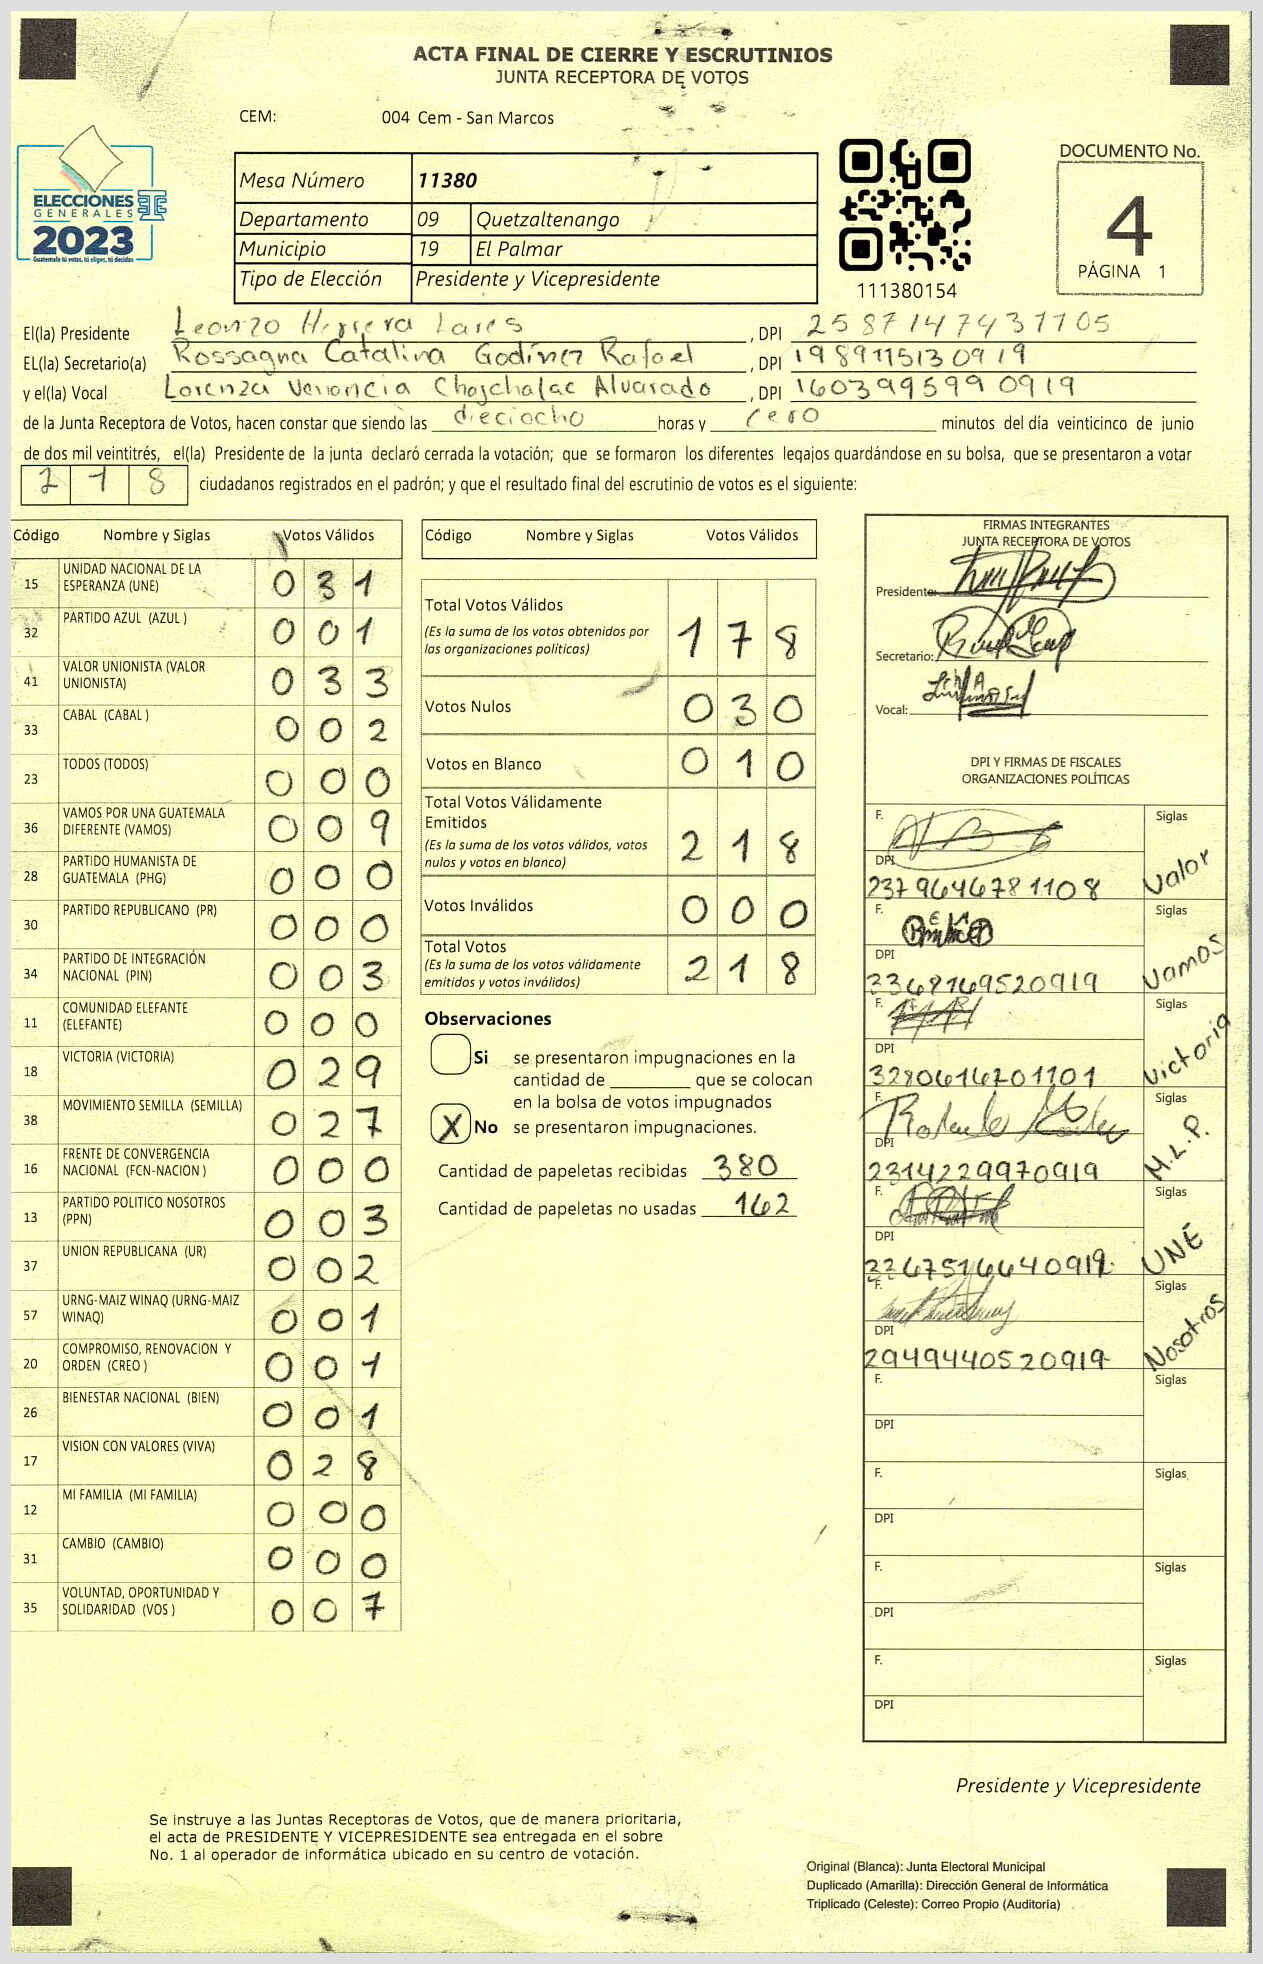 ACTA FINAL DE CIERRE Y ESCRUTINIOS
JUNTA RECEPTORA DE VOTOS
CEM: 004 Cem - San Marcos
ELECCIONES
GENERALES
2023
Guatemala tú votas, tú eliges, tú decides
Mesa Número 11380
Departamento 09 Quetzaltenango
Municipio 19 El Palmar
Tipo de Elección Presidente y Vicepresidente
111380154
DOCUMENTO No.
4
PÁGINA 1
El(la) Presidente Leonzo Herrera Lares, DPI 2587147431105
EL(la) Secretario(a) Rossagna Catalina Godínez Rafael, DPI 1989115130919
y el(la) Vocal Lorenza Venancia Chojchalac Alvarado, DPI 1603995990919
de la Junta Receptora de Votos, hacen constar que siendo las dieciocho horas y cero minutos del día veinticinco de junio
de dos mil veintitrés, el(la) Presidente de la junta declaró cerrada la votación; que se formaron los diferentes legajos guardándose en su bolsa, que se presentaron a votar
218 ciudadanos registrados en el padrón; y que el resultado final del escrutinio de votos es el siguiente:
Código Nombre y Siglas Votos Válidos
15 UNIDAD NACIONAL DE LA ESPERANZA (UNE) 031
32 PARTIDO AZUL (AZUL ) 001
41 VALOR UNIONISTA (VALOR UNIONISTA) 033
33 CABAL (CABAL ) 002
23 TODOS (TODOS) 000
36 VAMOS POR UNA GUATEMALA DIFERENTE (VAMOS) 009
28 PARTIDO HUMANISTA DE GUATEMALA (PHG) 000
30 PARTIDO REPUBLICANO (PR) 000
34 PARTIDO DE INTEGRACIÓN NACIONAL (PIN) 003
11 COMUNIDAD ELEFANTE (ELEFANTE) 000
18 VICTORIA (VICTORIA) 029
38 MOVIMIENTO SEMILLA (SEMILLA) 027
16 FRENTE DE CONVERGENCIA NACIONAL (FCN-NACION ) 000
13 PARTIDO POLITICO NOSOTROS (PPN) 003
37 UNION REPUBLICANA (UR) 002
57 URNG-MAIZ WINAQ (URNG-MAIZ WINAQ) 001
20 COMPROMISO, RENOVACION Y ORDEN (CREO ) 001
26 BIENESTAR NACIONAL (BIEN) 001
17 VISION CON VALORES (VIVA) 028
12 MI FAMILIA (MI FAMILIA) 000
31 CAMBIO (CAMBIO) 000
35 VOLUNTAD, OPORTUNIDAD Y SOLIDARIDAD (VOS ) 007
Código Nombre y Siglas Votos Válidos
Total Votos Válidos 178
(Es la suma de los votos obtenidos por
las organizaciones políticas)
Votos Nulos 030
Votos en Blanco 010
Total Votos Válidamente
Emitidos 218
(Es la suma de los votos válidos, votos
nulos y votos en blanco)
Votos Inválidos 000
Total Votos 218
(Es la suma de los votos válidamente
emitidos y votos inválidos)
Observaciones
Si se presentaron impugnaciones en la
cantidad de ________ que se colocan
en la bolsa de votos impugnados
X No se presentaron impugnaciones.
Cantidad de papeletas recibidas 380
Cantidad de papeletas no usadas 162
FIRMAS INTEGRANTES
JUNTA RECEPTORA DE VOTOS
Presidente:
Secretario:
Vocal:
DPI Y FIRMAS DE FISCALES
ORGANIZACIONES POLÍTICAS
F. Siglas
DPI 2379646781108 Valor
F. Siglas
DPI 3368169520919 Vamos
F. Siglas
DPI 3280616201101 Victoria
F. Siglas
DPI 2314229970919 M.L.P.
F. Siglas
DPI 2267516640919 UNE
F. Siglas
DPI 2949440520919 Nosotros
F. Siglas
DPI
F. Siglas
DPI
F. Siglas
DPI
F. Siglas
DPI
Presidente y Vicepresidente
Se instruye a las Juntas Receptoras de Votos, que de manera prioritaria,
el acta de PRESIDENTE Y VICEPRESIDENTE sea entregada en el sobre
No. 1 al operador de informática ubicado en su centro de votación.
Original (Blanca): Junta Electoral Municipal
Duplicado (Amarilla): Dirección General de Informática
Triplicado (Celeste): Correo Propio (Auditoría)